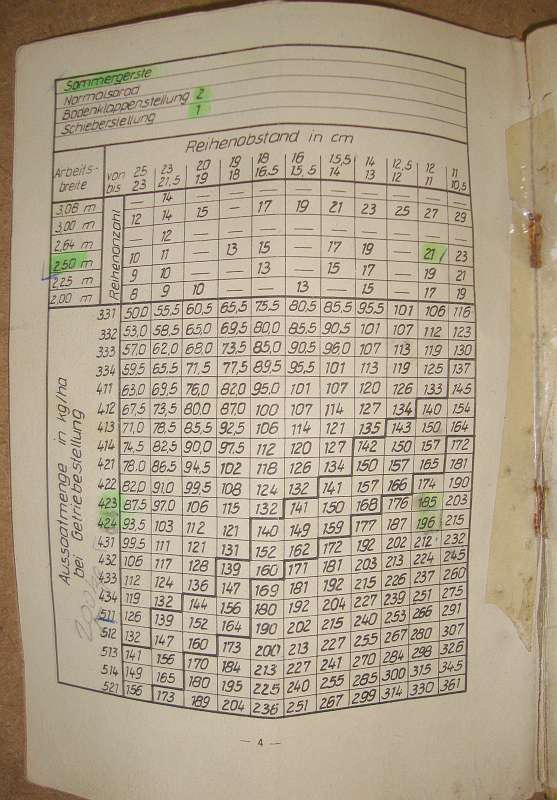 Sommergerste
Normalsärad
Bodenklappenstellung 2
Schieberstellung 1
Reihenabstand in cm
Arbeits- von 25 23 20 19 18 16 15,5 14 12,5 12 11
breite bis 23 21,5 19 18 16,5 15,5 14 13 12 11 10,5
3,08 m — 14 — — — — — — — — —
3,00 m 12 14 15 — 17 19 21 23 25 27 29
2,64 m — 12 — — — — — — — — —
2,50 m 10 11 — 13 15 — 17 19 — 21 23
2,25 m 9 10 — — 13 — 15 17 — 19 21
2,00 m 8 9 10 — — 13 — 15 — 17 19
Reihenanzahl
Aussaatmenge in kg/ha
bei Getriebestellung
331 50,0 55,5 60,5 65,5 75,5 80,5 85,5 95,5 101 106 116
332 53,0 58,5 65,0 69,5 80,0 85,5 90,5 101 107 112 123
333 57,0 62,0 68,0 73,5 85,0 90,5 96,0 107 113 119 130
334 59,5 65,5 71,5 77,5 89,5 95,5 101 113 119 125 137
411 63,0 69,5 76,0 82,0 95,0 101 107 120 126 133 145
412 67,5 73,5 80,0 87,0 100 107 114 127 134 140 154
413 71,0 78,5 85,5 92,5 106 114 121 135 143 150 164
414 74,5 82,5 90,0 97,5 112 120 127 142 150 157 172
421 78,0 86,5 94,5 102 118 126 134 150 157 165 181
422 82,0 91,0 99,5 108 124 132 141 157 166 174 190
423 87,5 97,0 106 115 132 141 150 168 176 185 203
424 93,5 103 112 121 140 149 159 177 187 196 215
431 99,5 111 121 131 152 162 172 192 202 212 232
432 106 117 128 139 160 171 181 203 213 224 245
433 112 124 136 147 169 181 192 215 226 237 260
434 119 132 144 156 180 192 204 227 239 251 275
511 126 139 152 164 190 202 215 240 253 266 291
512 132 147 160 173 200 213 227 255 267 280 307
513 141 156 170 184 213 227 241 270 284 298 326
514 149 165 180 195 225 240 255 285 300 315 345
521 156 173 189 204 236 251 267 299 314 330 361
— 4 —